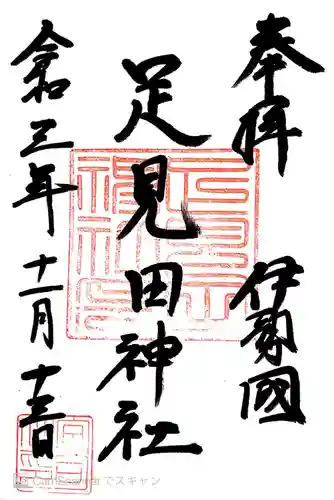 奉拝
伊勢國
足見田神社
令和三年
十一月
十三日
CamScannerでスキャン